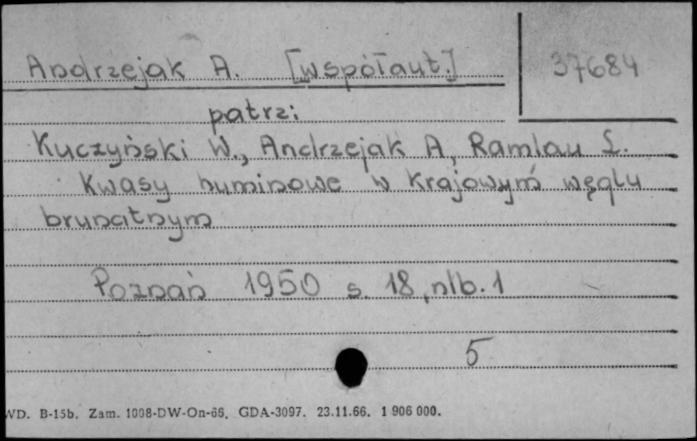 Andrzejak A. [współaut.] 37684
patrz:
Kuczyński W., Andrzejak A, Ramlau Ł.
Kwasy huminowe w krajowym węglu
brunatnym
Poznań 1950 s. 18, nlb. 1
5
WD. B-15b. Zam. 1098-DW-On-66. GDA-3097. 23.11.66. 1 906 000.